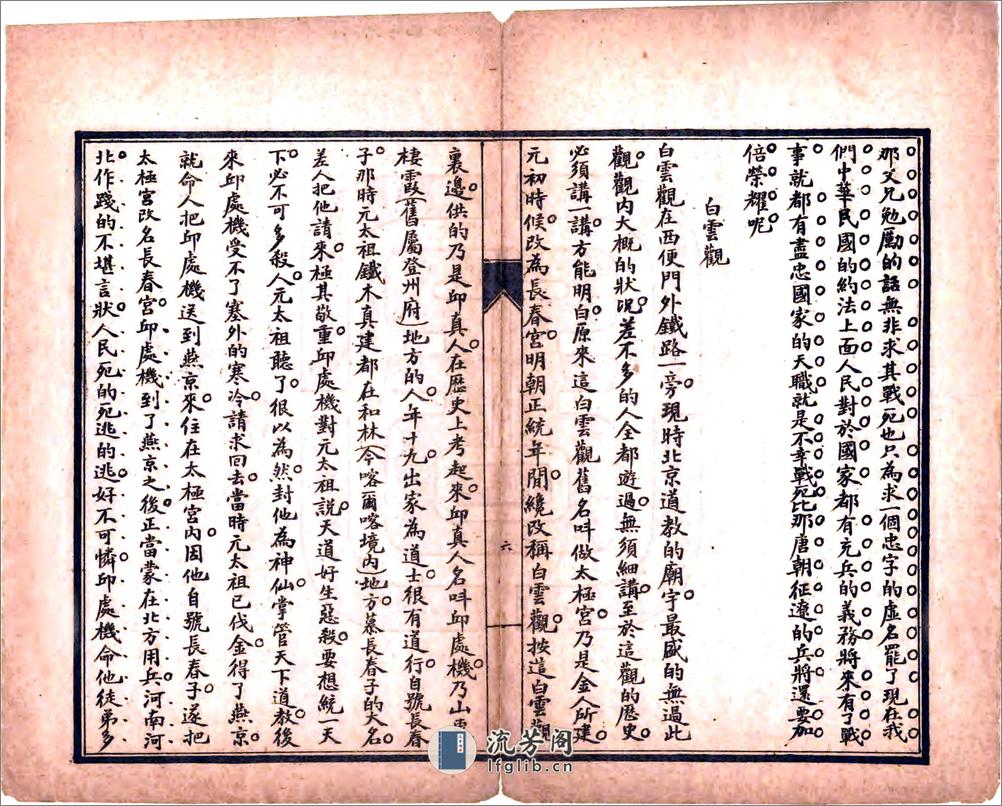 那父兄勉勵的話無非求其戰死也只為求一個忠字的虛名罷了現在我
們中華民國的約法上面人民對於國家都有充兵的義務將來有了戰
事就都有盡忠國家的天職就是不幸戰死比那唐朝征遼的兵將還要加
倍榮耀呢
白雲觀
白雲觀在西便門外鐵路一旁現時北京道教的廟宇最盛的無過此
觀觀內大概的狀況差不多的人全都遊過無須細講至於這觀的歷史
必須講一講方能明白原來這白雲觀舊名叫做太極宮乃是金人所建
元初時候改為長春宮明朝正統年間纔改稱白雲觀按這白雲觀
六
裏邊供的乃是邱真人在歷史上考起來邱真人名叫邱處機乃山東
棲霞(舊屬登州府)地方的人年十九出家為道士很有道行自號長春
子那時元太祖鐵木真建都在和林(今喀爾喀境內)地方慕長春子的大名
差人把他請來極其敬重邱處機對元太祖說天道好生惡殺要想統一天
下必不可多殺人元太祖聽了很以為然封他為神仙掌管天下道教後
來邱處機受不了塞外的寒冷請求回去當時元太祖已伐金得了燕京
就命人把邱處機送到燕京來住在太極宮內因他自號長春子遂把
太極宮改名長春宮邱處機到了燕京之後正當蒙在北方用兵河南河
北作踐的不堪言狀人民死的死逃的逃好不可憐邱處機命他徒弟多
流芳阁
lfglib.cn